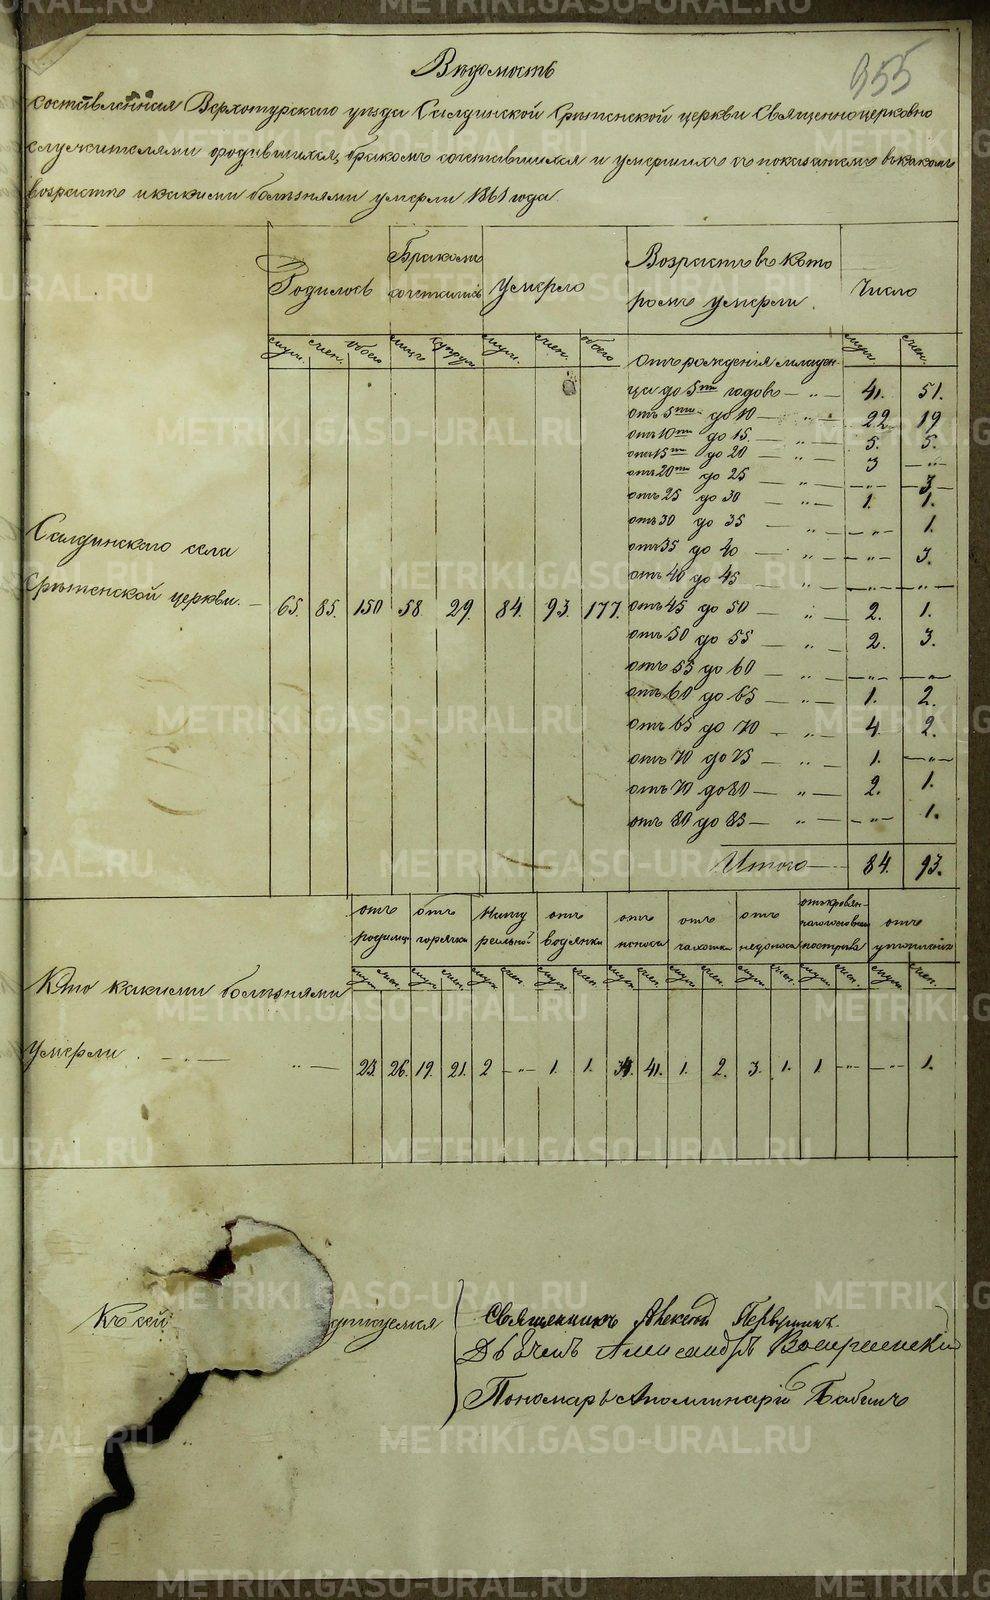 955
Вѣдомость
составленная Верхотурскаго уѣзда Салдинской Срѣтенской церкви Священноцерковно
служителями о родившихся, бракомъ сочетавшихся и умершихъ съ показатемъ въ какомъ
возрастѣ и какими болѣзнями умерли 1861 года.
Родилось
Бракомъ сочетались
умерло
Возрастъ въ кото
ромъ умерли.
Число
муж. жен. обоего лицъ супруж муж. жен. обоего
муж. жен.
отъ рожденія младен-
ца до 5ти годовъ — „ — 41. 51.
отъ 5ти до 10 — „ — 22. 19
отъ 10ти до 15. — „ 5. 5.
отъ 15ти до 20 — „ 3 — „ —
отъ 20ти до 25 — „ — — „ — 3.
отъ 25 до 30 — „ — 1. 1.
отъ 30 до 35 — „ — „ — 1.
отъ 35 до 40 — „ — — „ — 3.
отъ 40 до 45 — „ — „ — — „ —
Салдинскаго села
Срѣтенской церкви. — 65. 85. 150 58. 29. 84. 93. 177.
отъ 45 до 50 — „ — 2. 1.
отъ 50 до 55 — „ — 2. 3.
отъ 55 до 60 — „ — — „ — — „ —
отъ 60 до 65 — „ — 1. 2.
отъ 65 до 70 — „ — 4. 2.
отъ 70 до 75 — „ — 1. — „ —
отъ 70 до 80 — „ — 2. 1.
отъ 80 до 85 — „ — — „ — 1.
Итого — 84. 93.
отъ родимца
отъ горячки
Нату ральной
отъ водянки
отъ поноса
отъ чахотки
отъ недоноса
отъ утопленія
муж. жен. муж. жен. муж. жен. муж. жен. муж. жен. муж. жен. муж. жен. муж. жен. муж. жен.
Кто какими болѣзнями
умерли . — „ —
„ — 23. 26. 19. 21. 2 — „ — 1. 1. 34. 41. 1. 2. 3. 1. 1. — „ — — „ — 1.
Къ сей
Священникъ Алексѣй Первушинъ.
Дьячекъ Александръ Воскресенскій
Пономарь Аполлинарій Бабинъ
METRIKI.GASO-URAL.RU